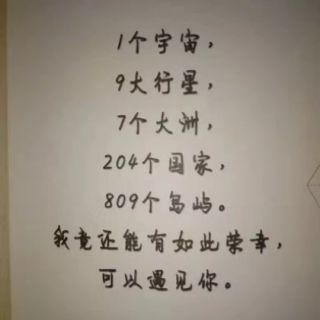 1个宇宙，
9大行星，
7个大洲，
204个国家，
809个岛屿。
我竟还能有如此荣幸，
可以遇见你。